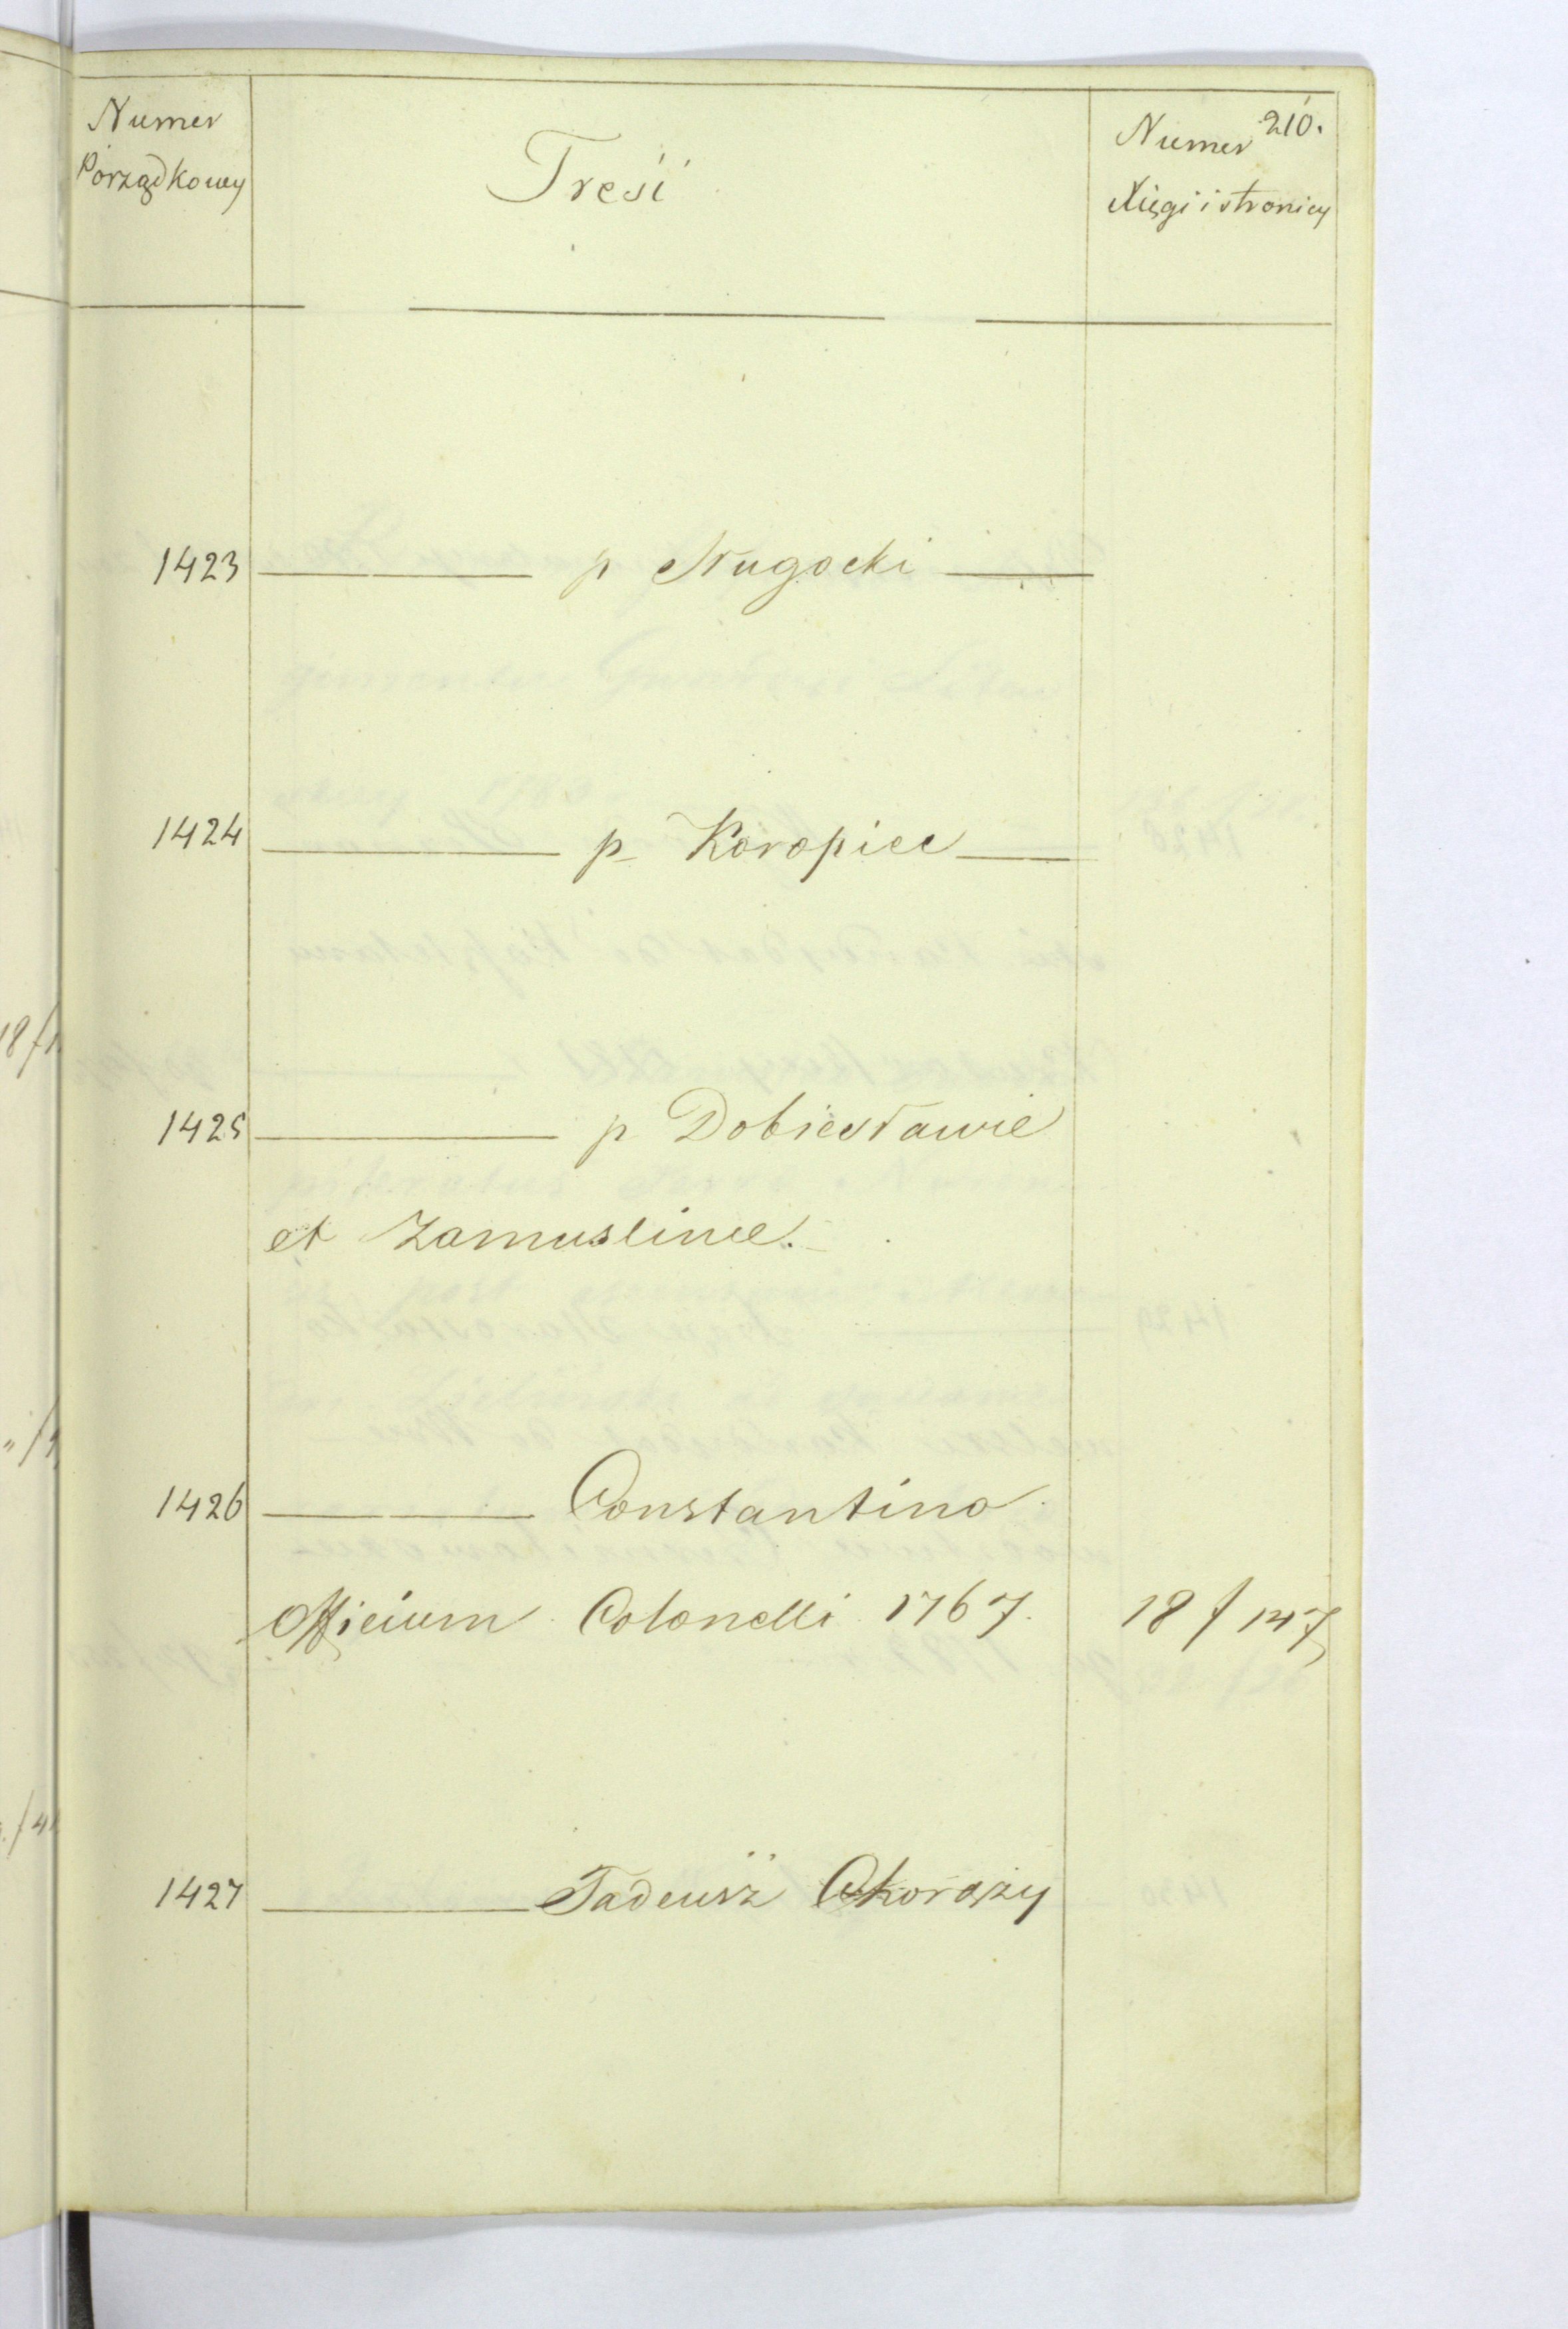 210.
Numer
Porządkowy
Treść
Numer
Xięgi i stronicy
1423 p Nugocki
1424 p Koropiec
1425 p Dobiesławie
et Zamuslince.
1426 Constantino
Officium Colonelli 1767. 18 f 147
1427 Tadeusz Chorąży